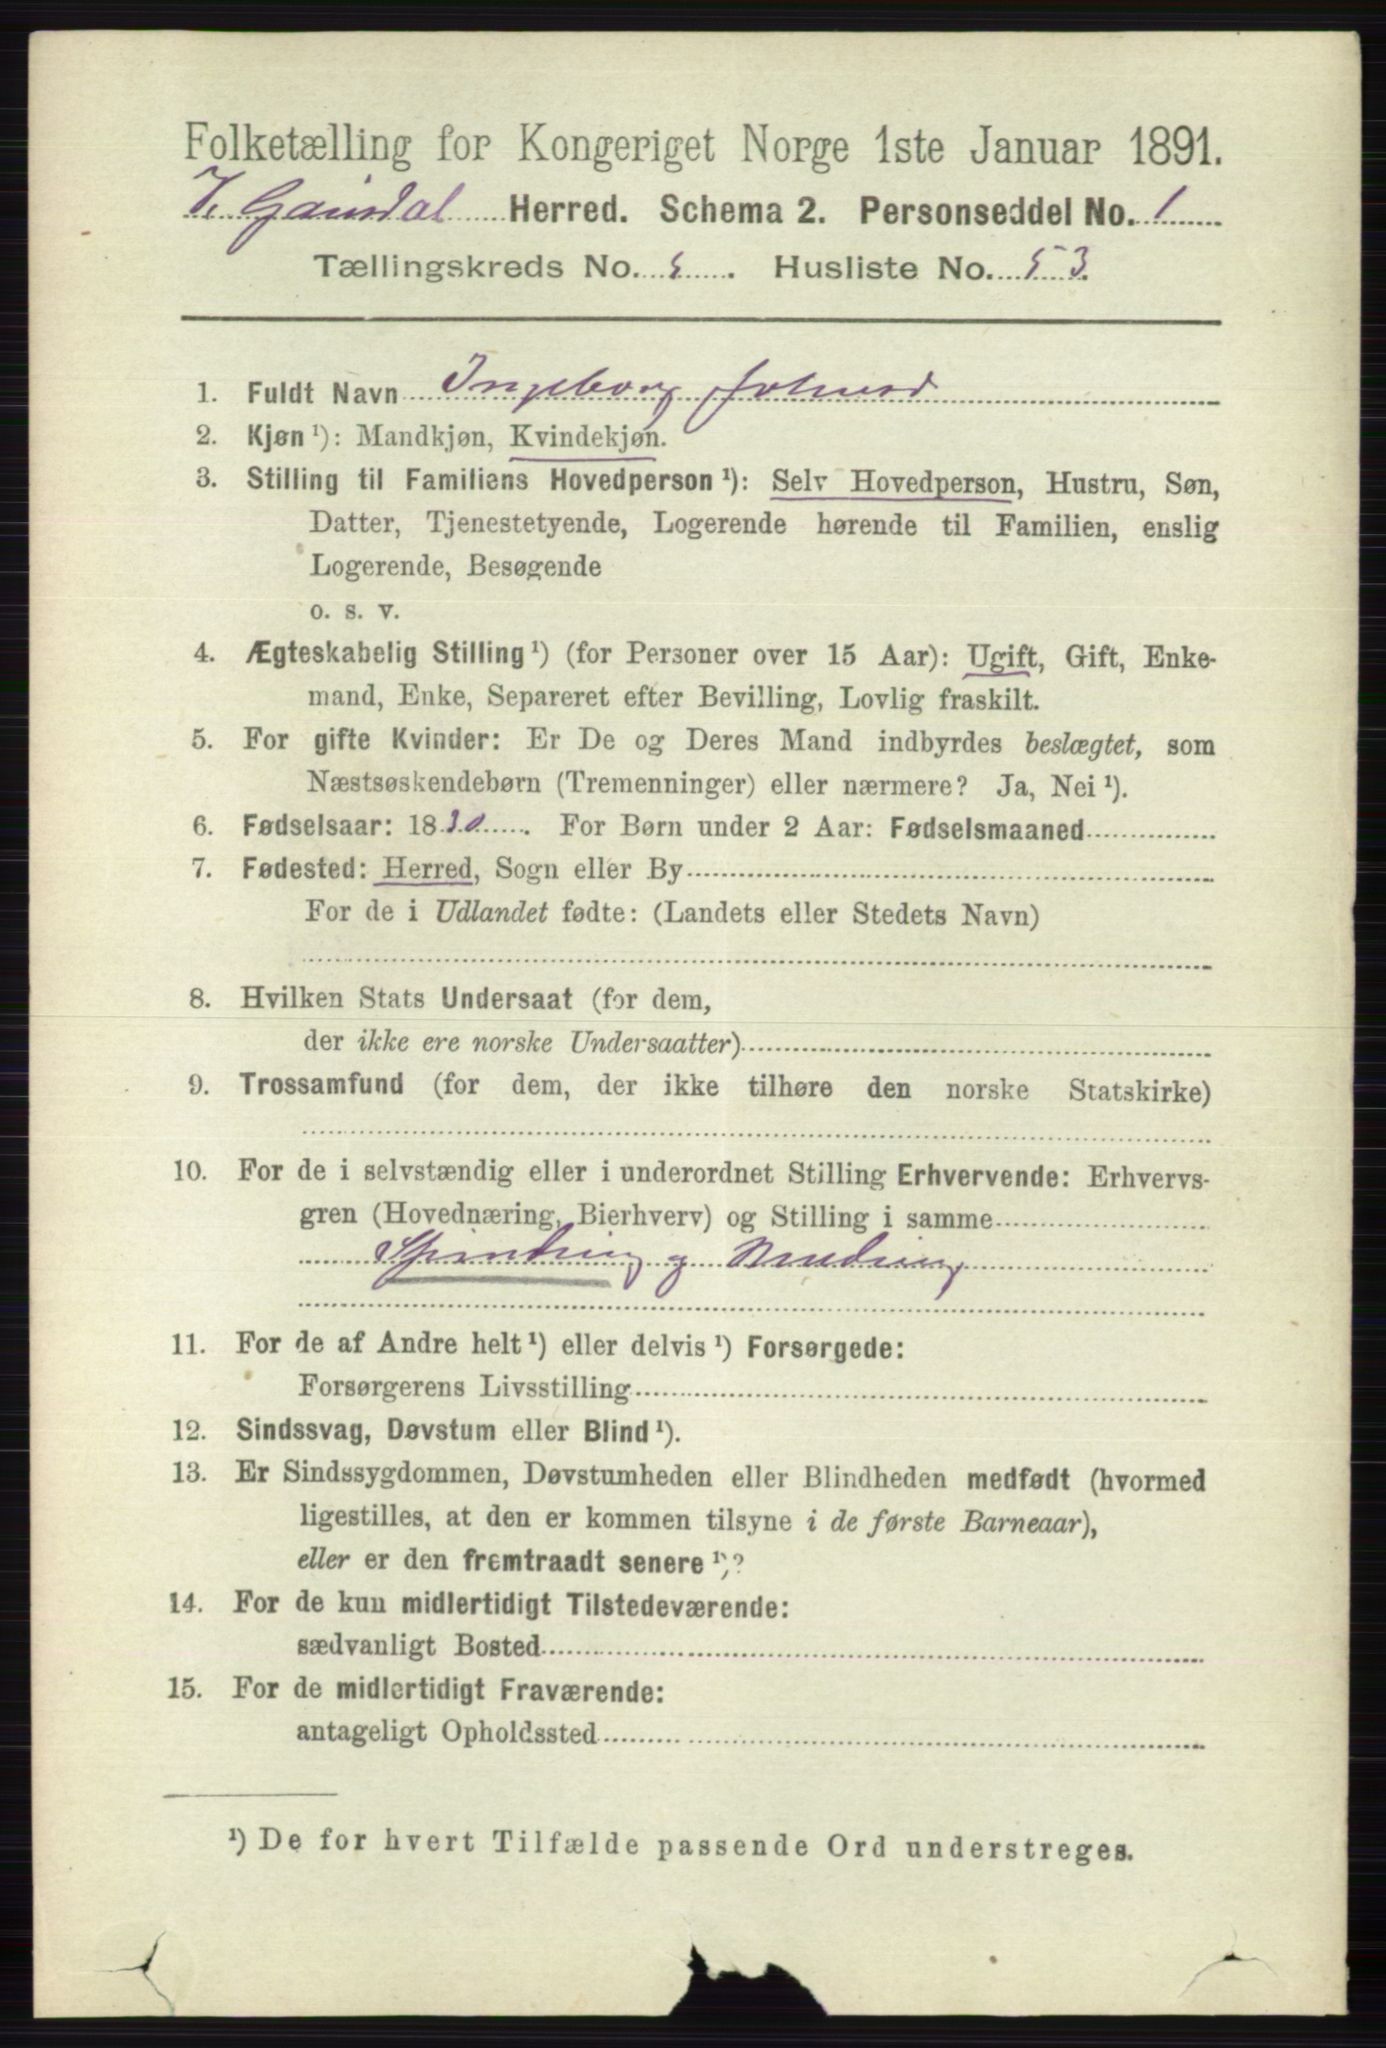 Folketælling for Kongeriget Norge 1ste Januar 1891.
V. Gausdal Herred. Schema 2. Personseddel No. 1
Tællingskreds No. 5. Husliste No. 53.
1. Fuldt Navn Ingeborg Johnsd
2. Kjøn ¹): Mandkjøn, Kvindekjøn.
3. Stilling til Familiens Hovedperson ¹): Selv Hovedperson, Hustru, Søn,
Datter, Tjenestetyende, Logerende hørende til Familien, enslig
Logerende, Besøgende
o. s. v.
4. Ægteskabelig Stilling ¹) (for Personer over 15 Aar): Ugift, Gift, Enke-
mand, Enke, Separeret efter Bevilling, Lovlig fraskilt.
5. For gifte Kvinder: Er De og Deres Mand indbyrdes beslægtet, som
Næstsøskendebørn (Tremenninger) eller nærmere? Ja, Nei ¹).
6. Fødselsaar: 1830. For Børn under 2 Aar: Fødselsmaaned
7. Fødested: Herred, Sogn eller By
For de i Udlandet fødte: (Landets eller Stedets Navn)
8. Hvilken Stats Undersaat (for dem,
der ikke ere norske Undersaatter)
9. Trossamfund (for dem, der ikke tilhøre den norske Statskirke)
10. For de i selvstændig eller i underordnet Stilling Erhvervende: Erhvervs-
gren (Hovednæring, Bierhverv) og Stilling i samme
Spinding og
11. For de af Andre helt ¹) eller delvis ¹) Forsørgede:
Forsørgerens Livsstilling
12. Sindssvag, Døvstum eller Blind ¹).
13. Er Sindssygdommen, Døvstumheden eller Blindheden medfødt (hvormed
ligestilles, at den er kommen tilsyne i de første Barneaar),
eller er den fremtraadt senere ¹)?
14. For de kun midlertidigt Tilstedeværende:
sædvanligt Bosted
15. For de midlertidigt Fraværende:
antageligt Opholdssted
¹) De for hvert Tilfælde passende Ord understreges.